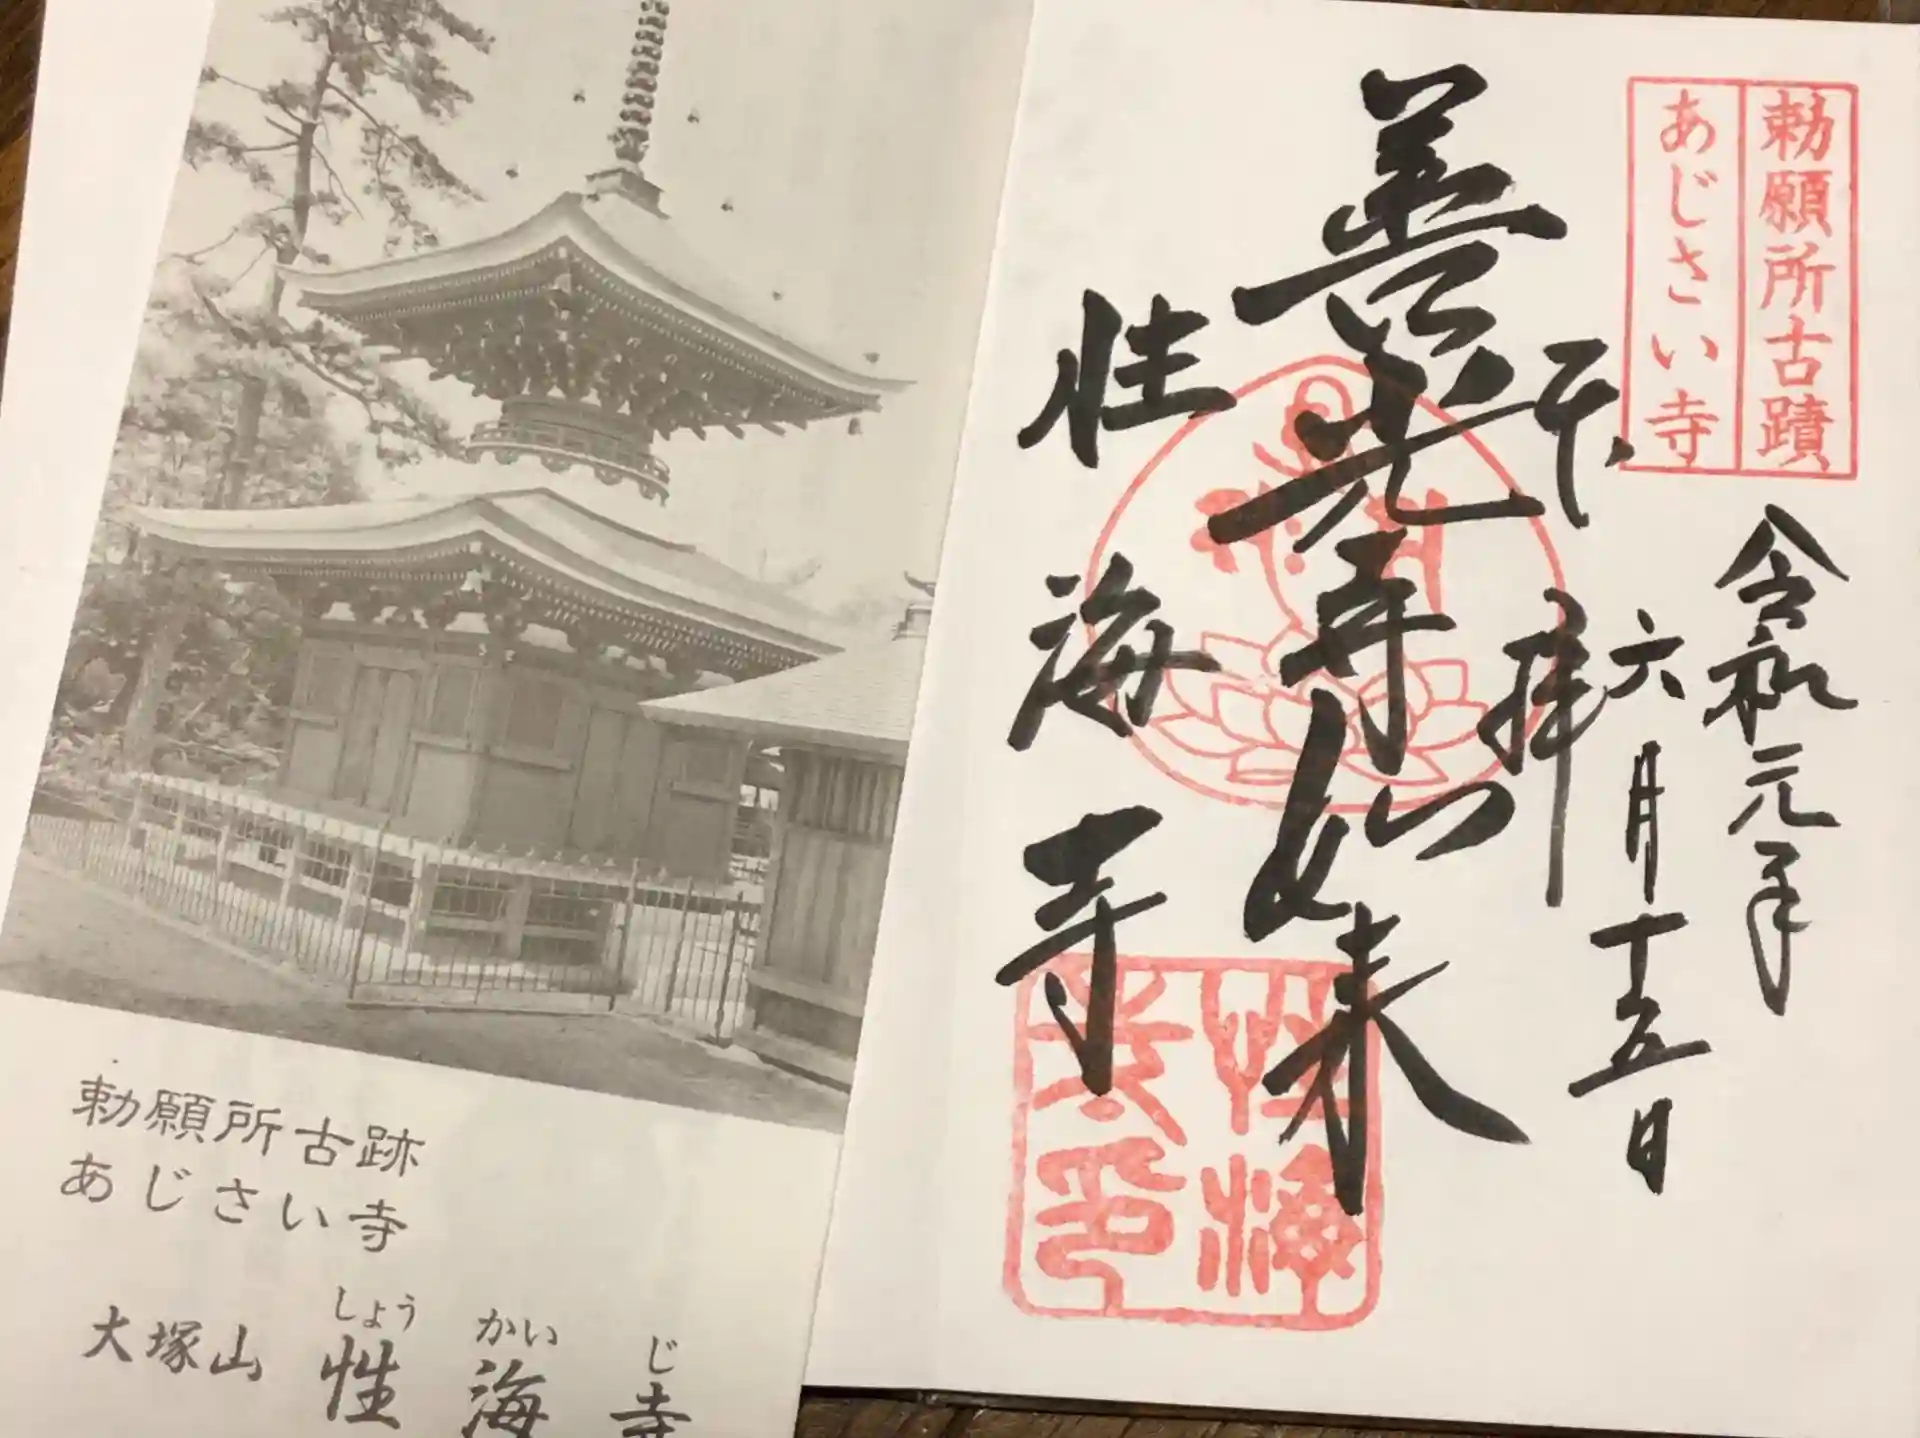 勅願所古跡
あじさい寺
しょう かい じ
大塚山 性海寺
勅願所古蹟
あじさい寺
令和元年
六月十五日
奉拝
善光寺如来
性海寺